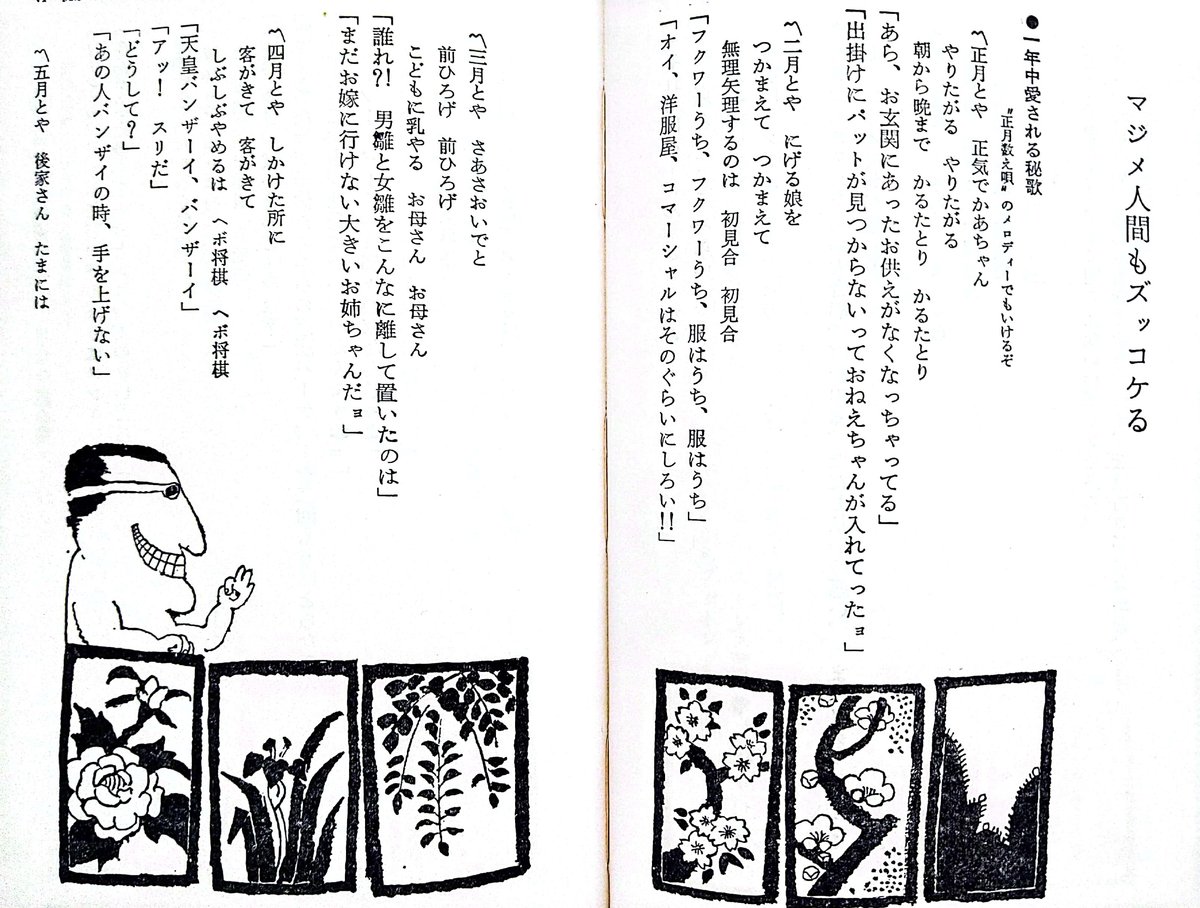 マジメ人間もズッコケる
●一年中愛される秘歌
〝正月数え唄〟のメロディーでもいけるぞ
〽正月とや 正気でかあちゃん
やりたがる やりたがる
朝から晩まで かるたとり かるたとり
「あら、お玄関にあったお供えがなくなっちゃってる」
「出掛けにパットが見つからないっておねえちゃんが入れてったョ」
〽二月とや にげる娘を
つかまえて つかまえて
無理矢理するのは 初見合 初見合
「フクワーうち、フクワーうち、服はうち、服はうち」
「オイ、洋服屋、コマーシャルはそのぐらいにしろい!!」
〽三月とや さあさおいでと
前ひろげ 前ひろげ
こどもに乳やる お母さん お母さん
「誰れ?! 男雛と女雛をこんなに離して置いたのは」
「まだお嫁に行けない大きいお姉ちゃんだョ」
〽四月とや しかけた所に
客がきて 客がきて
しぶしぶやめるは ヘボ将棋 ヘボ将棋
「天皇バンザーイ、バンザーイ」
「アッ! スリだ」
「どうして?」
「あの人バンザイの時、手を上げない」
〽五月とや 後家さん たまには